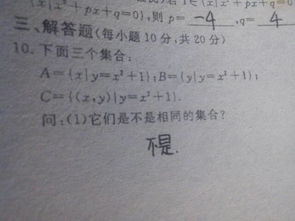 {x|x²+px+q=0},则p= -4 ,q= 4
三、解答题(每小题10分,共20分)
10. 下面三个集合:
A={x|y=x²+1};B={y|y=x²+1};
C={(x,y)|y=x²+1}.
问:(1)它们是不是相同的集合?
不是.